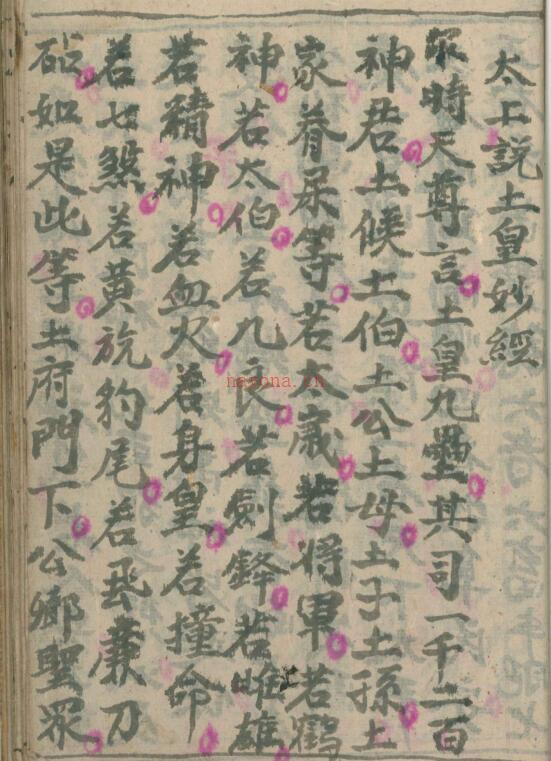 太上説土皇妙經
尔時天尊言土皇九壘其司一千二百
神君土候土伯土公土母土子土孫土
家眷屬等若太歲若將軍若鶴
神若太伯若九良若劍鋒若雌雄
若精神若血火若身皇若撞命
若七煞若黄旛豹尾若飛廉刀
砧如是此等土府門下公卿聖眾
nasona.cn